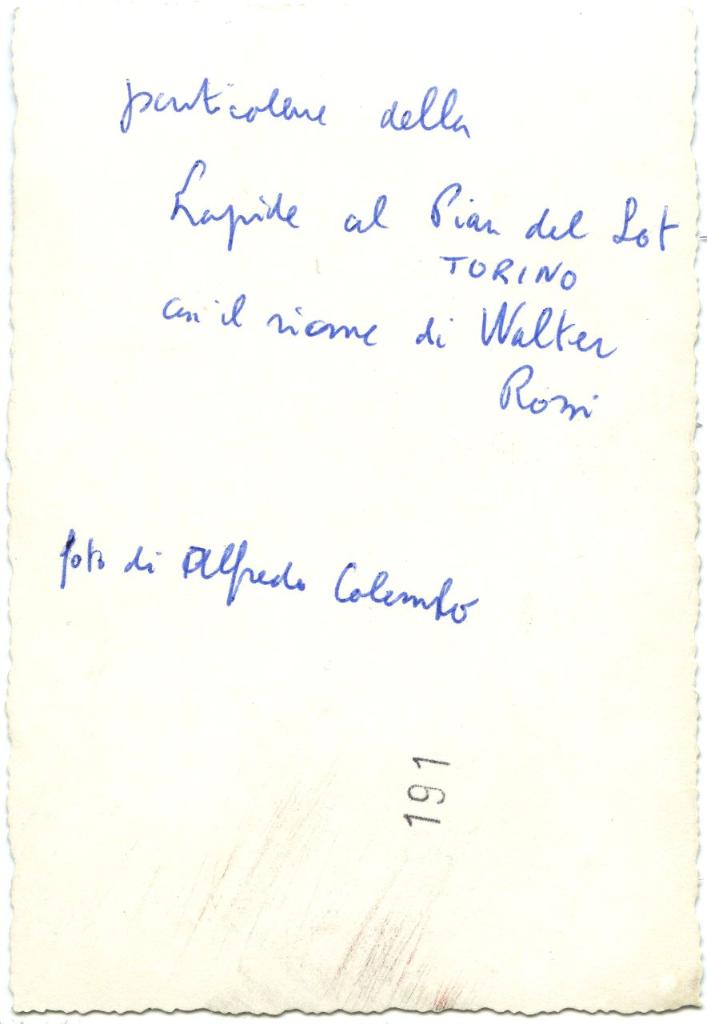 particolare della
Lapide al Pian del Lot
TORINO
con il nome di Walter
Rossi
foto di Alfredo Colombo
191